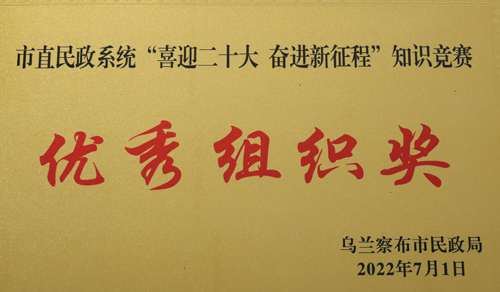 市直民政系统“喜迎二十大 奋进新征程”知识竞赛
优秀组织奖
乌兰察布市民政局
2022年7月1日